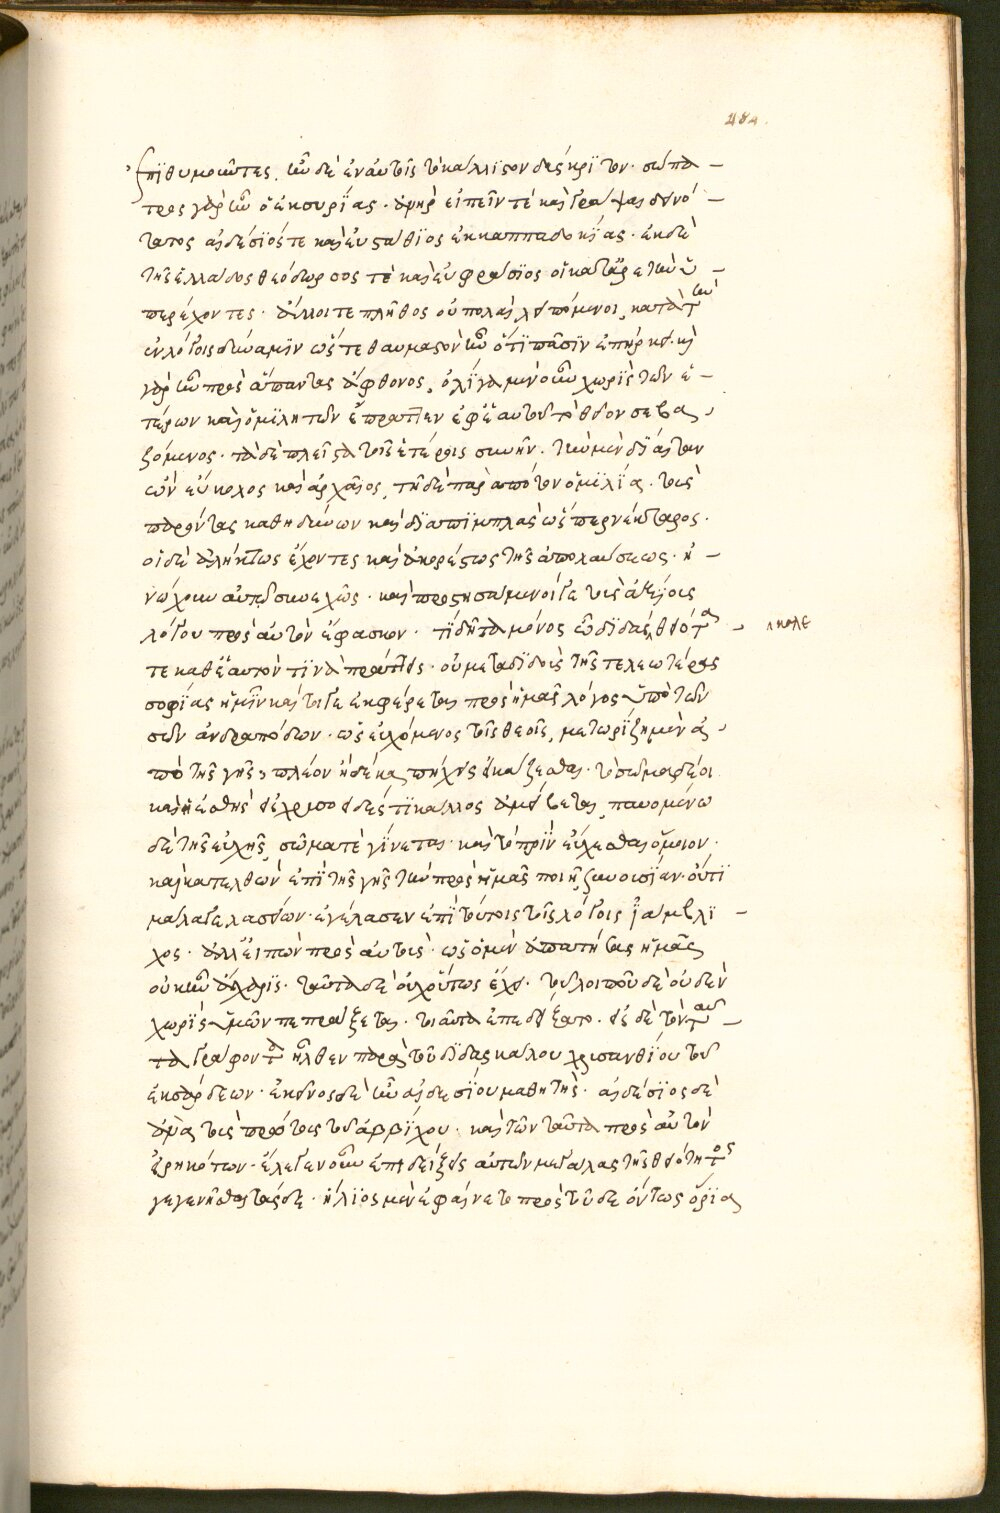 484
ἐπϊθυμοῦντες. ἦν δὲ ἐν αὐτοῖς τὸ κάλλιστον δὲ ἔκκρϊτον. σώπα
τρος γὰρ ἦν ὁ ἐκ συρΐας. ἀνὴρ εἰπεῖν τὲ καὶ γράψαι δυνό
τατος αἰδέσϊός τε καὶ εὐσταθϊος ἐκ καππαδοκΐας. ἐκ δὲ
τῆς ἑλλάδος θεόδωρος τὲ καὶ εὐφράσϊος οἱ κατ' ἀρετὴν ὑ
περέχοντες. ἄλλοι τε πλῆθος οὐ πολλοὶ λειπόμενοι, κατὰ τὴν
ἐν λόγοις δύναμϊν ὥστε θαυμαστὸν ἦν ὅτϊ πᾶσϊν ἐπήρκει. καὶ
γὰρ ἦν πρὸς ἅπαντας ἄφθονος, ὀλΐγα μὲν οὖν χωρὶς τῶν ἑ
τέρων καὶ ὁμϊλητῶν ἔπραττεν ἐφ' ἑαυτοῦ τὸ θεῖον σεβα
ζόμενος. τὰ δὲ πλεῖστα τοῖς ἑτέροις συνῆν. τὴν μὲν δΐαιταν
ὢν εὔκολος καὶ ἀρχαῖος, τῇ δὲ παρὰ πότον ὁμϊλΐα. τοὺς
παρόντας καθηδύνων καὶ δϊαπϊμπλὰς ὥσπερ νέκταρος.
οἱ δὲ ἀλήκτως ἔχοντες καὶ ἀκορέστως τῆς ἀπολαύσεως. ἠ
νώχλουν αὐτῷ συνεχῶς. καὶ προστησάμενοί γε τοὺς ἀξίους
λόγου πρὸς αὐτὸν ἔφασκον. τϊ δῆτα μόνος ὦ δϊδάσκαλε θειότα
κολε
τε καθ' ἑαυτόν τϊνα πράττεις. οὐ μεταδϊδοὺς τῆς τελεωτέρας
σοφΐας ἡμῖν καί τοιγε ἐκφέρεται πρὸς ἡμᾶς λόγος ὑπὸ τῶν
σῶν ἀνδραπόδων. ὡς εὐχόμενος τοῖς θεοῖς, μετωρΐζη μὲν ἀ
πὸ τῆς γῆς πλέον ἢ δέκα πήχεις εἰκάζεσθαι. τὸ σῶμα δέ σοι
καὶ ἡ ἐσθὴς εἰς χρυσοειδές τϊ κάλλος ἀμείβεται, παυομένω
δὲ τῆς εὐχῆς, σῶμα τὲ γΐνεται. καὶ τὸ πρὶν εὔχεσθαι ὅμοιον.
καὶ κατελθὼν ἐπὶ τῆς γῆς τὴν πρὸς ἡμᾶς ποιῇ συνουσΐαν. οὔτϊ
μάλα γελασείων. ἐγέλασεν ἐπὶ τούτοις τοῖς λόγοις ἰάμβλϊ
χος. ἀλλ' εἰπὼν πρὸς αὐτοὺς. ὡς ὁ μὲν ἀπατήσας ἡμᾶς
οὐκ ἦν ἄχαρϊς. ταῦτα δὲ οὐχ οὕτως ἔχει. τοῦ λοιποῦ δὲ οὐδὲν
χωρὶς ὑμῶν πεπράξεται. τοιαῦτα ἐπεδείξατο. εἰς δὲ τὸν ταῦ
τα γράφοντα ἦλθεν παρὰ τοῦ δϊδασκάλου χρυσανθΐου τοῦ
ἐκ σάρδεων. ἐκεῖνος δὲ ἦν αἰδεσΐου μαθητὴς. αἰδέσϊος δὲ
ἀνὰ τοὺς πρώτους τοῦ ἀμβλΐχου. καὶ τῶν ταῦτα πρὸς αὐτὸν
εἰρηκότων. ἔλεγεν οὖν ἐπιδείξεις αὐτῶν μεγάλας τῆς θειότητος
γεγενῆσθαι τάσδε. ἥλϊος μὲν ἐφαίνετο πρὸς τοῦδε ὄντως ὅρϊα